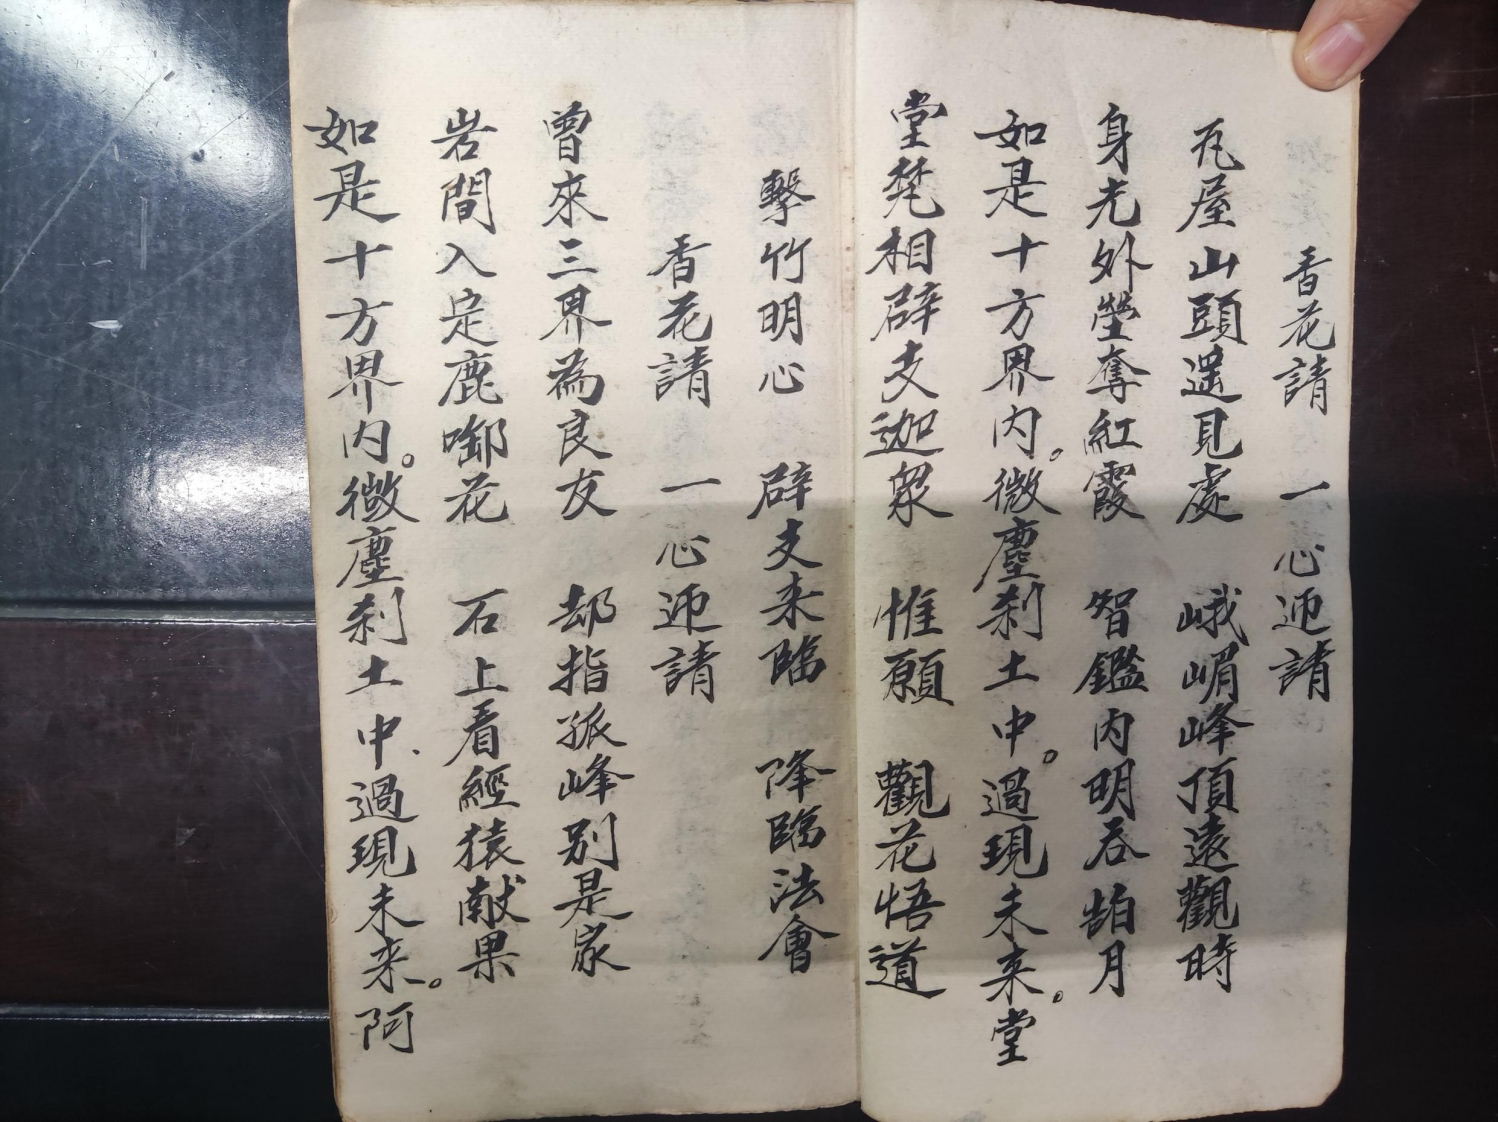 香花請 一心迎請
瓦屋山頭遥見處 峨嵋峰頂遠觀時
身光外瑩奪紅霞 智鑑内明吞皓月
如是十方界内。微塵刹土中。過現未来。堂
堂梵相辟支迦衆 惟願 觀花悟道
擊竹明心 辟支来臨 降臨法會
香花請 一心迎請
曾來三界為良友 却指孤峰别是家
岩間入定鹿啣花 石上看經猿献果
如是十方界内。微塵刹土中、過現未来。阿